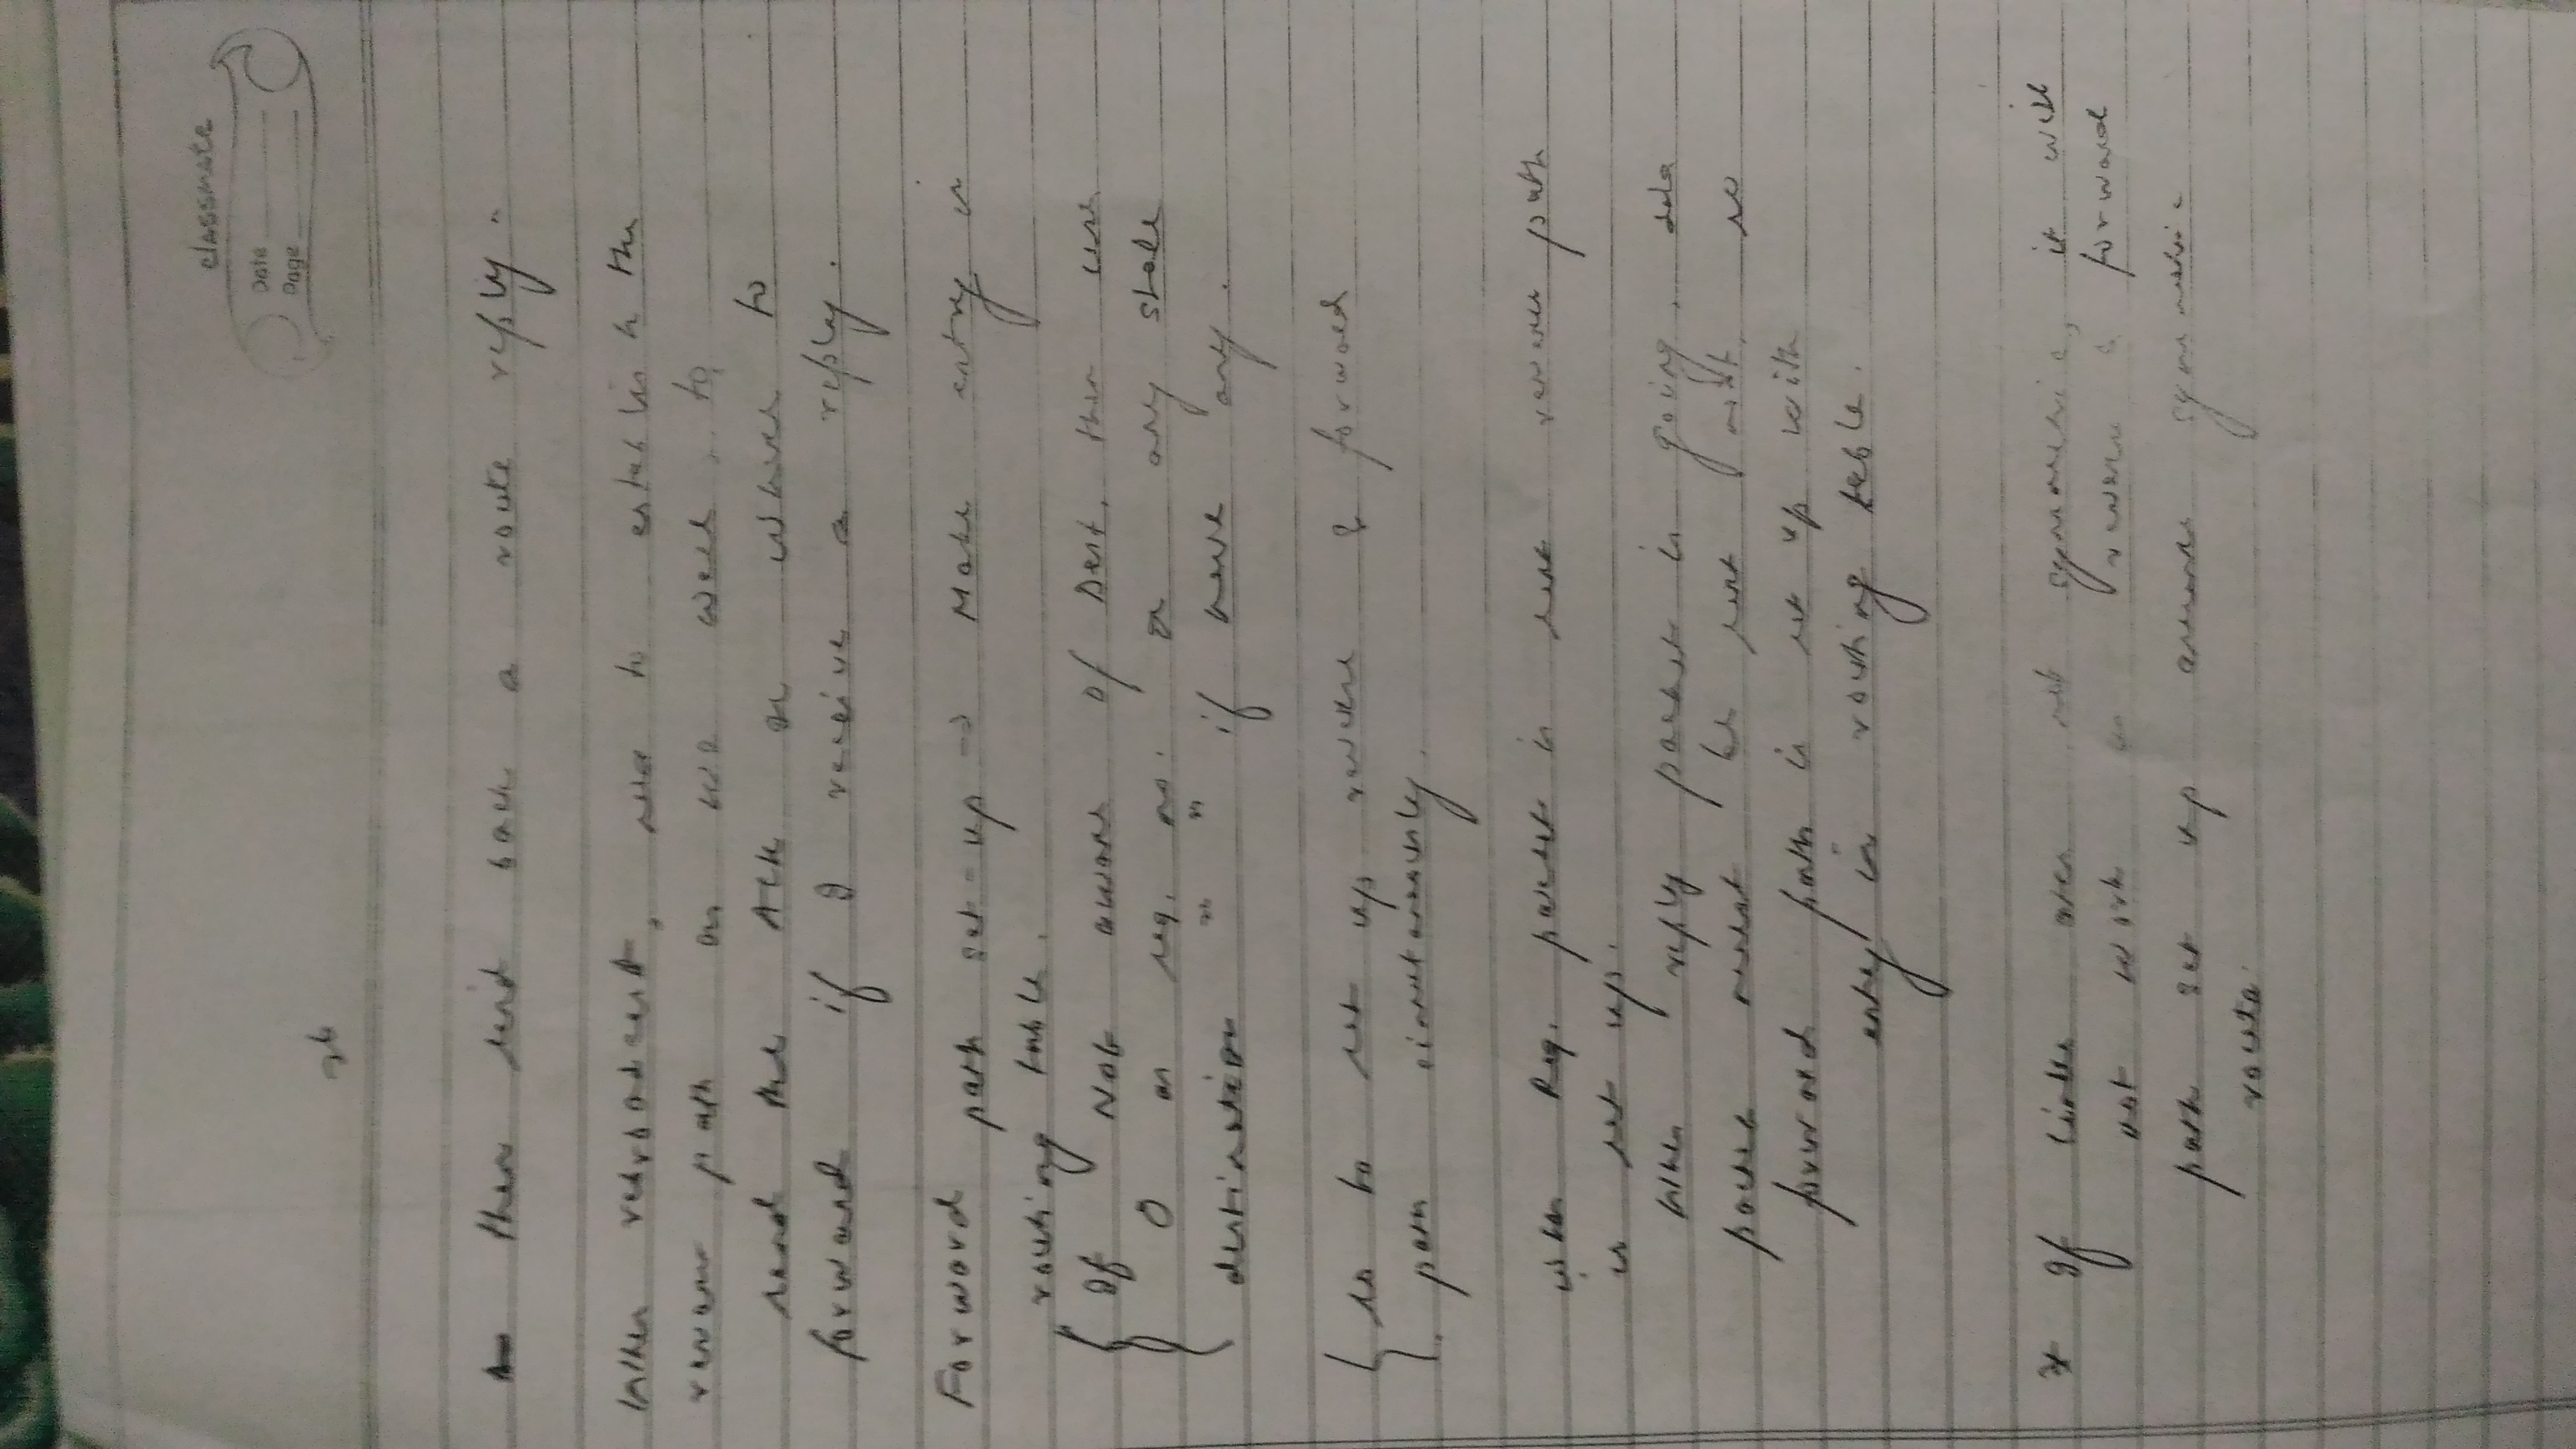 classmate
Date
Page
then send back a route reply.
When rebroadcast, need to establish the
reverse path as we well to
send the Ack or where to
forward if I receive a reply.
Forward path set-up → Make entry in
routing table.
If Not aware of Dest. then use
0 as seq. no. or any stale
destination " " if have any.
so to set up reverse & forward
path simultaneously.
when Req. packet is sent reverse path
is set up.
When reply packet is going, data
packet must be sent next, so
forward path is set up with
entry in routing table.
* If links are not symmetric, it will
not work as reverse & forward
path set up assume symmetric
route.